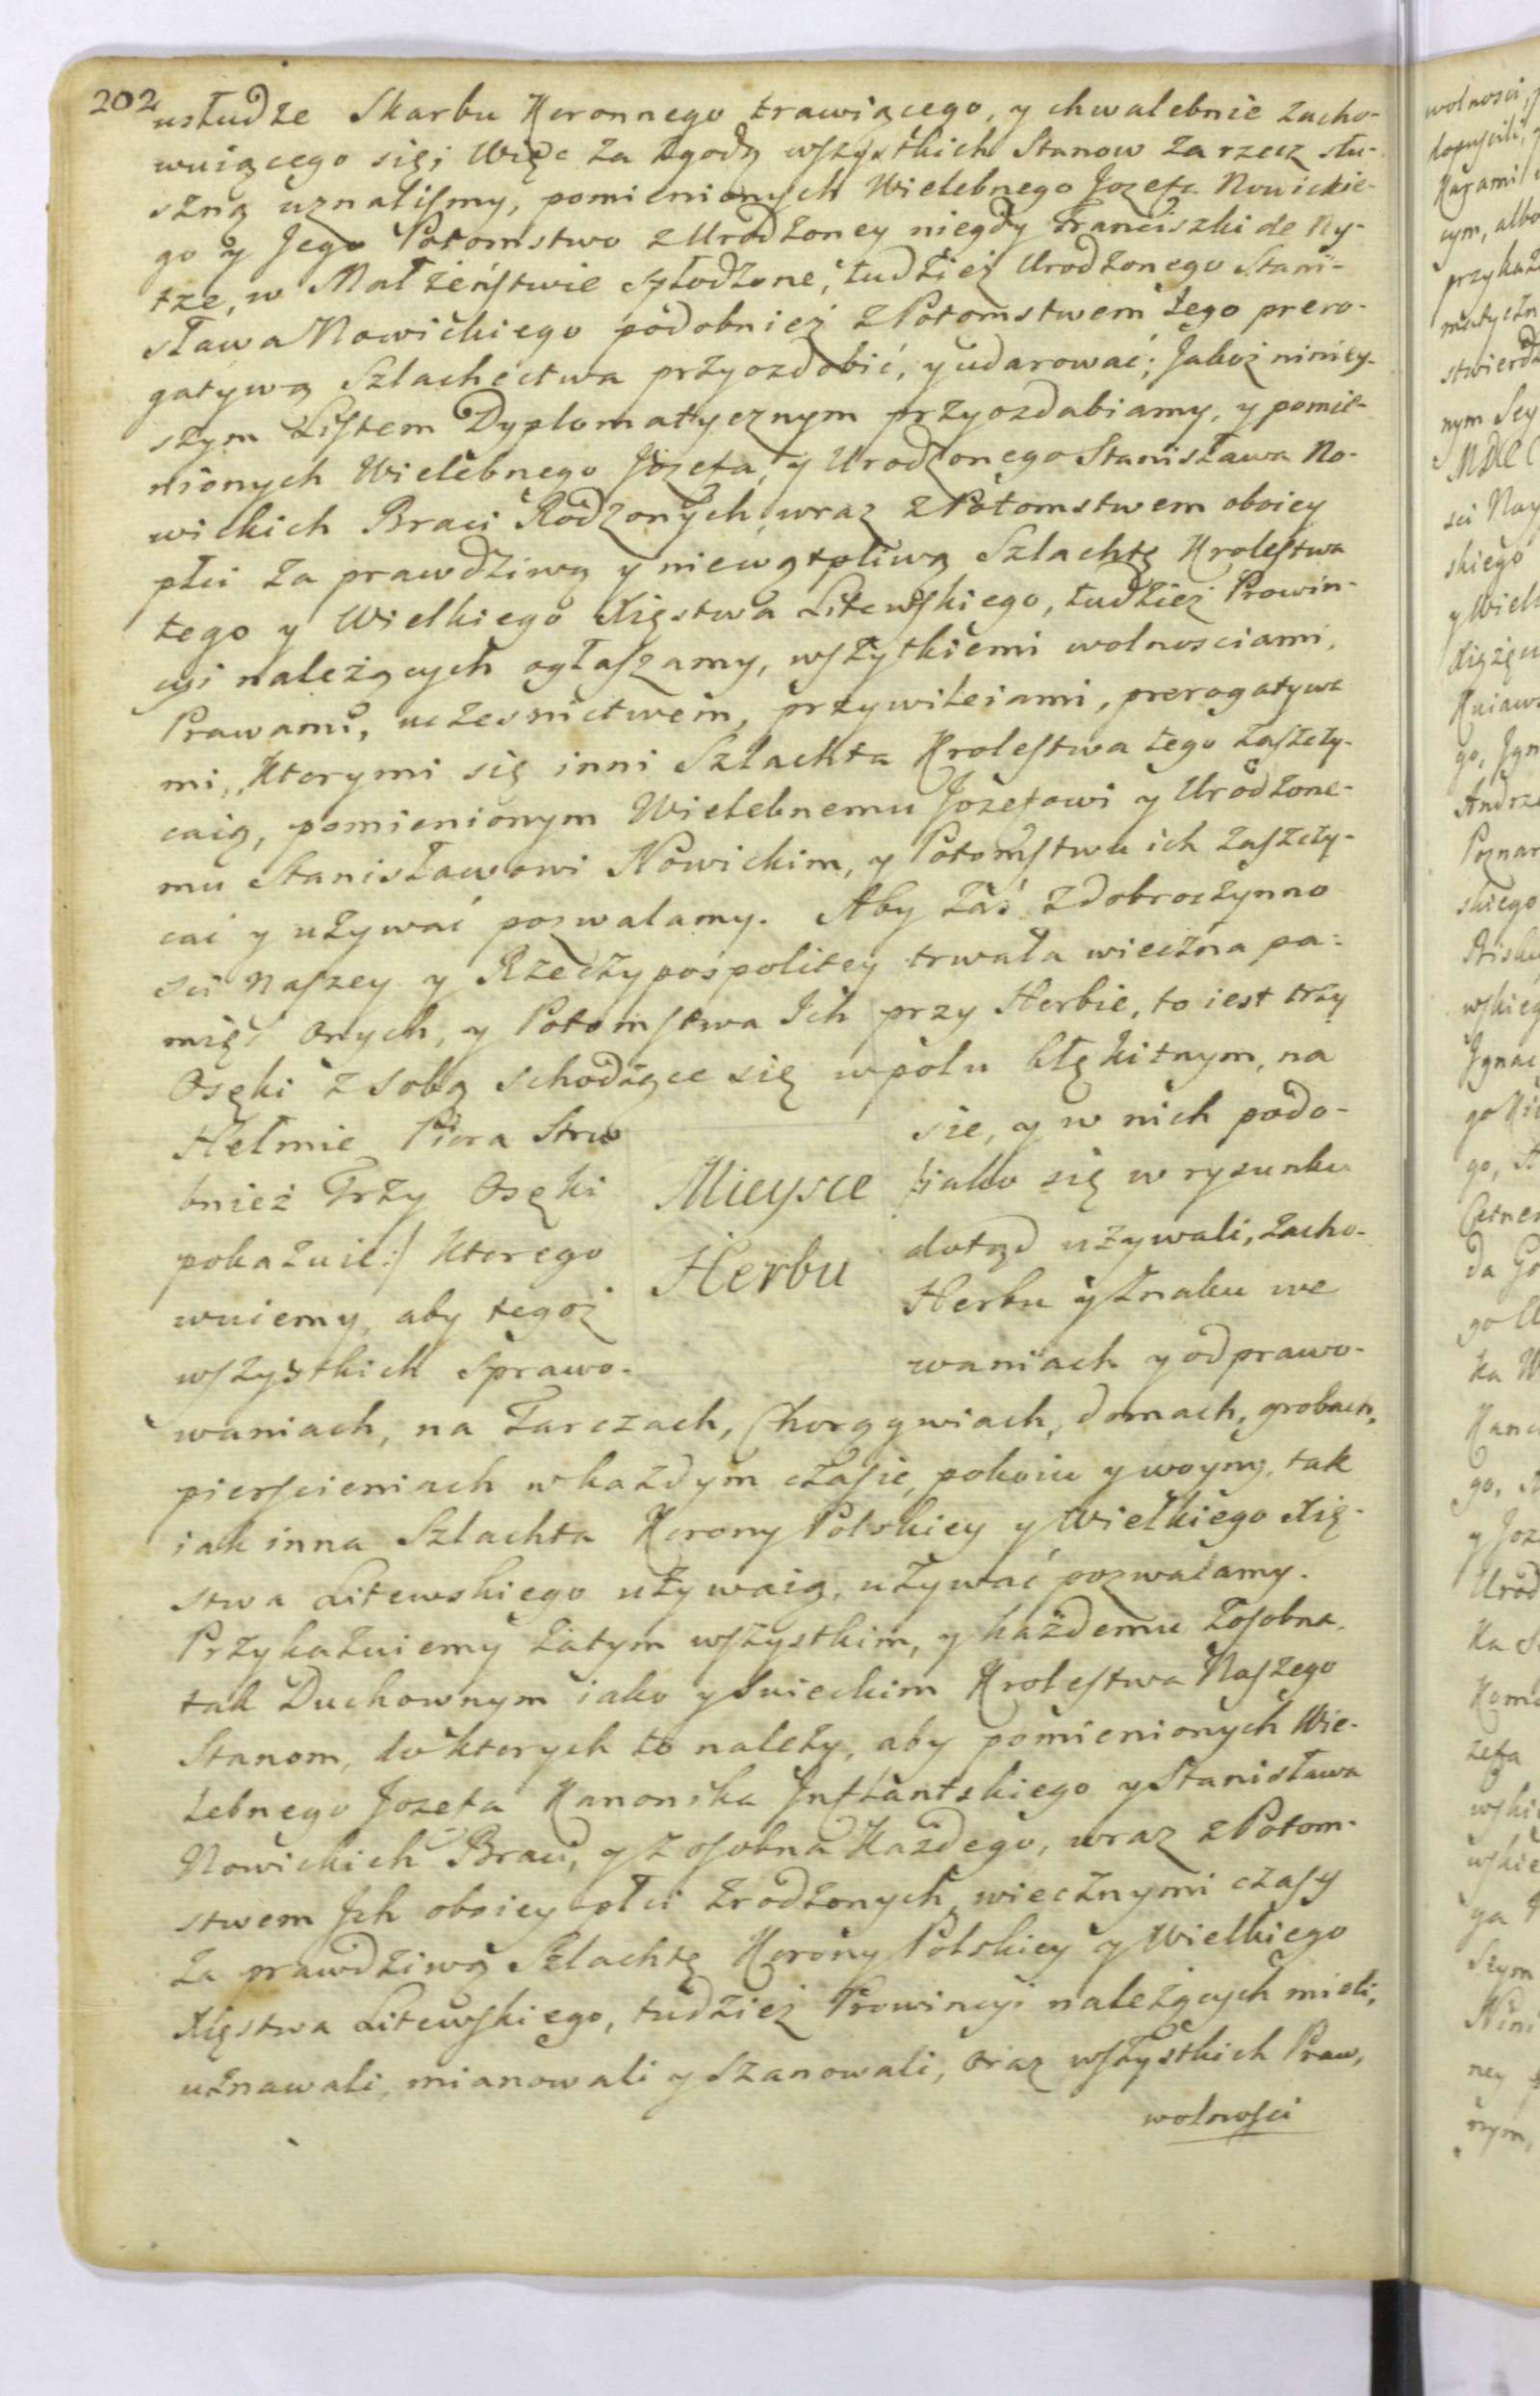 202
usłudze Skarbu Koronnego trawiącego, y chwalebnie zacho-
wuiącego się; Więc za zgodą wszystkich Stanow za rzecz słu-
szną uznaliśmy, pomienionych Wielebnego Jozefa Nowickie-
go y Jego Potomstwo z Urodzoney niegdy Franciszki de Ny-
tze, w Małżeństwie spłodzone, tudzież Urodzonego Stani-
sława Nowickiego podobnież z Potomstwem tego prero-
gatywą Szlachectwa przyozdobić, y udarować; Jakoż niniey-
szym Listem Dyplomatycznym przyozdabiamy, y pomie-
nionych Wielebnego Jozefa, y Urodzonego Stanisława No-
wickich Braci Rodzonych, wraz z Potomstwem oboiey
płci za prawdziwą y niewątpliwą Szlachtę Krolestwa
tego y Wielkiego Xięstwa Litewskiego, tudzież Prowin-
cyi należących ogłaszamy, wszytkiemi wolnosciami,
Prawami, uczesnictwem, przywileiami, prerogatywa
mi, Ktorymi się inni Szlachta Krolestwa tego zaszczy-
caią, pomienionym Wielebnemu Jozefowi y Urodzone-
mu Stanisławowi Nowickim, y Potomstwu ich zaszczy-
cać y używać pozwalamy. Aby zaś z dobroczynno
sci Naszey y Rzeczypospolitey trwała wieczna pa-
mięć Onych, y Potomstwa Ich przy Herbie, to iest trzy
Osęki z sobą schodzące się w polu błękitnym, na
Hełmie Piora Stru sie, y w nich podo-
bnież Trzy Osęki Mieysce iako się w rysunku
pokazuie:/ Ktorego Herbu dotąd używali, zacho-
wuiemy, aby tegoż Herbu y Znaku we
wszystkich Sprawo- waniach y odprawo-
waniach, na Tarczach, Chorągwiach, domach, grobach,
pierscieniach w każdym czasie, pokoiu y woyny, tak
iak inna Szlachta Korony Polskiey y Wielkiego Xię-
stwa Litewskiego używaią, używać pozwalamy.
Przykazuiemy zatym wszystkim, y każdemu zosobna,
tak Duchownym iako y Swieckim Krolestwa Naszego
Stanom, do ktorych to należy, aby pomienionych Wie-
lebnego Jozefa Kanonika Inflantskiego y Stanisława
Nowickich Braci, y z osobna Każdego, wraz z Potom-
stwem Jch oboiey płci zrodzonych, wiecznymi czasy
za prawdziwą Szlachtę Korony Polskiey y Wielkiego
Xięstwa Litewskiego, tudzież Prowincyi należących mieli,
uznawali, mianowali y Szanowali, oraz wszystkich Praw,
wolnosci